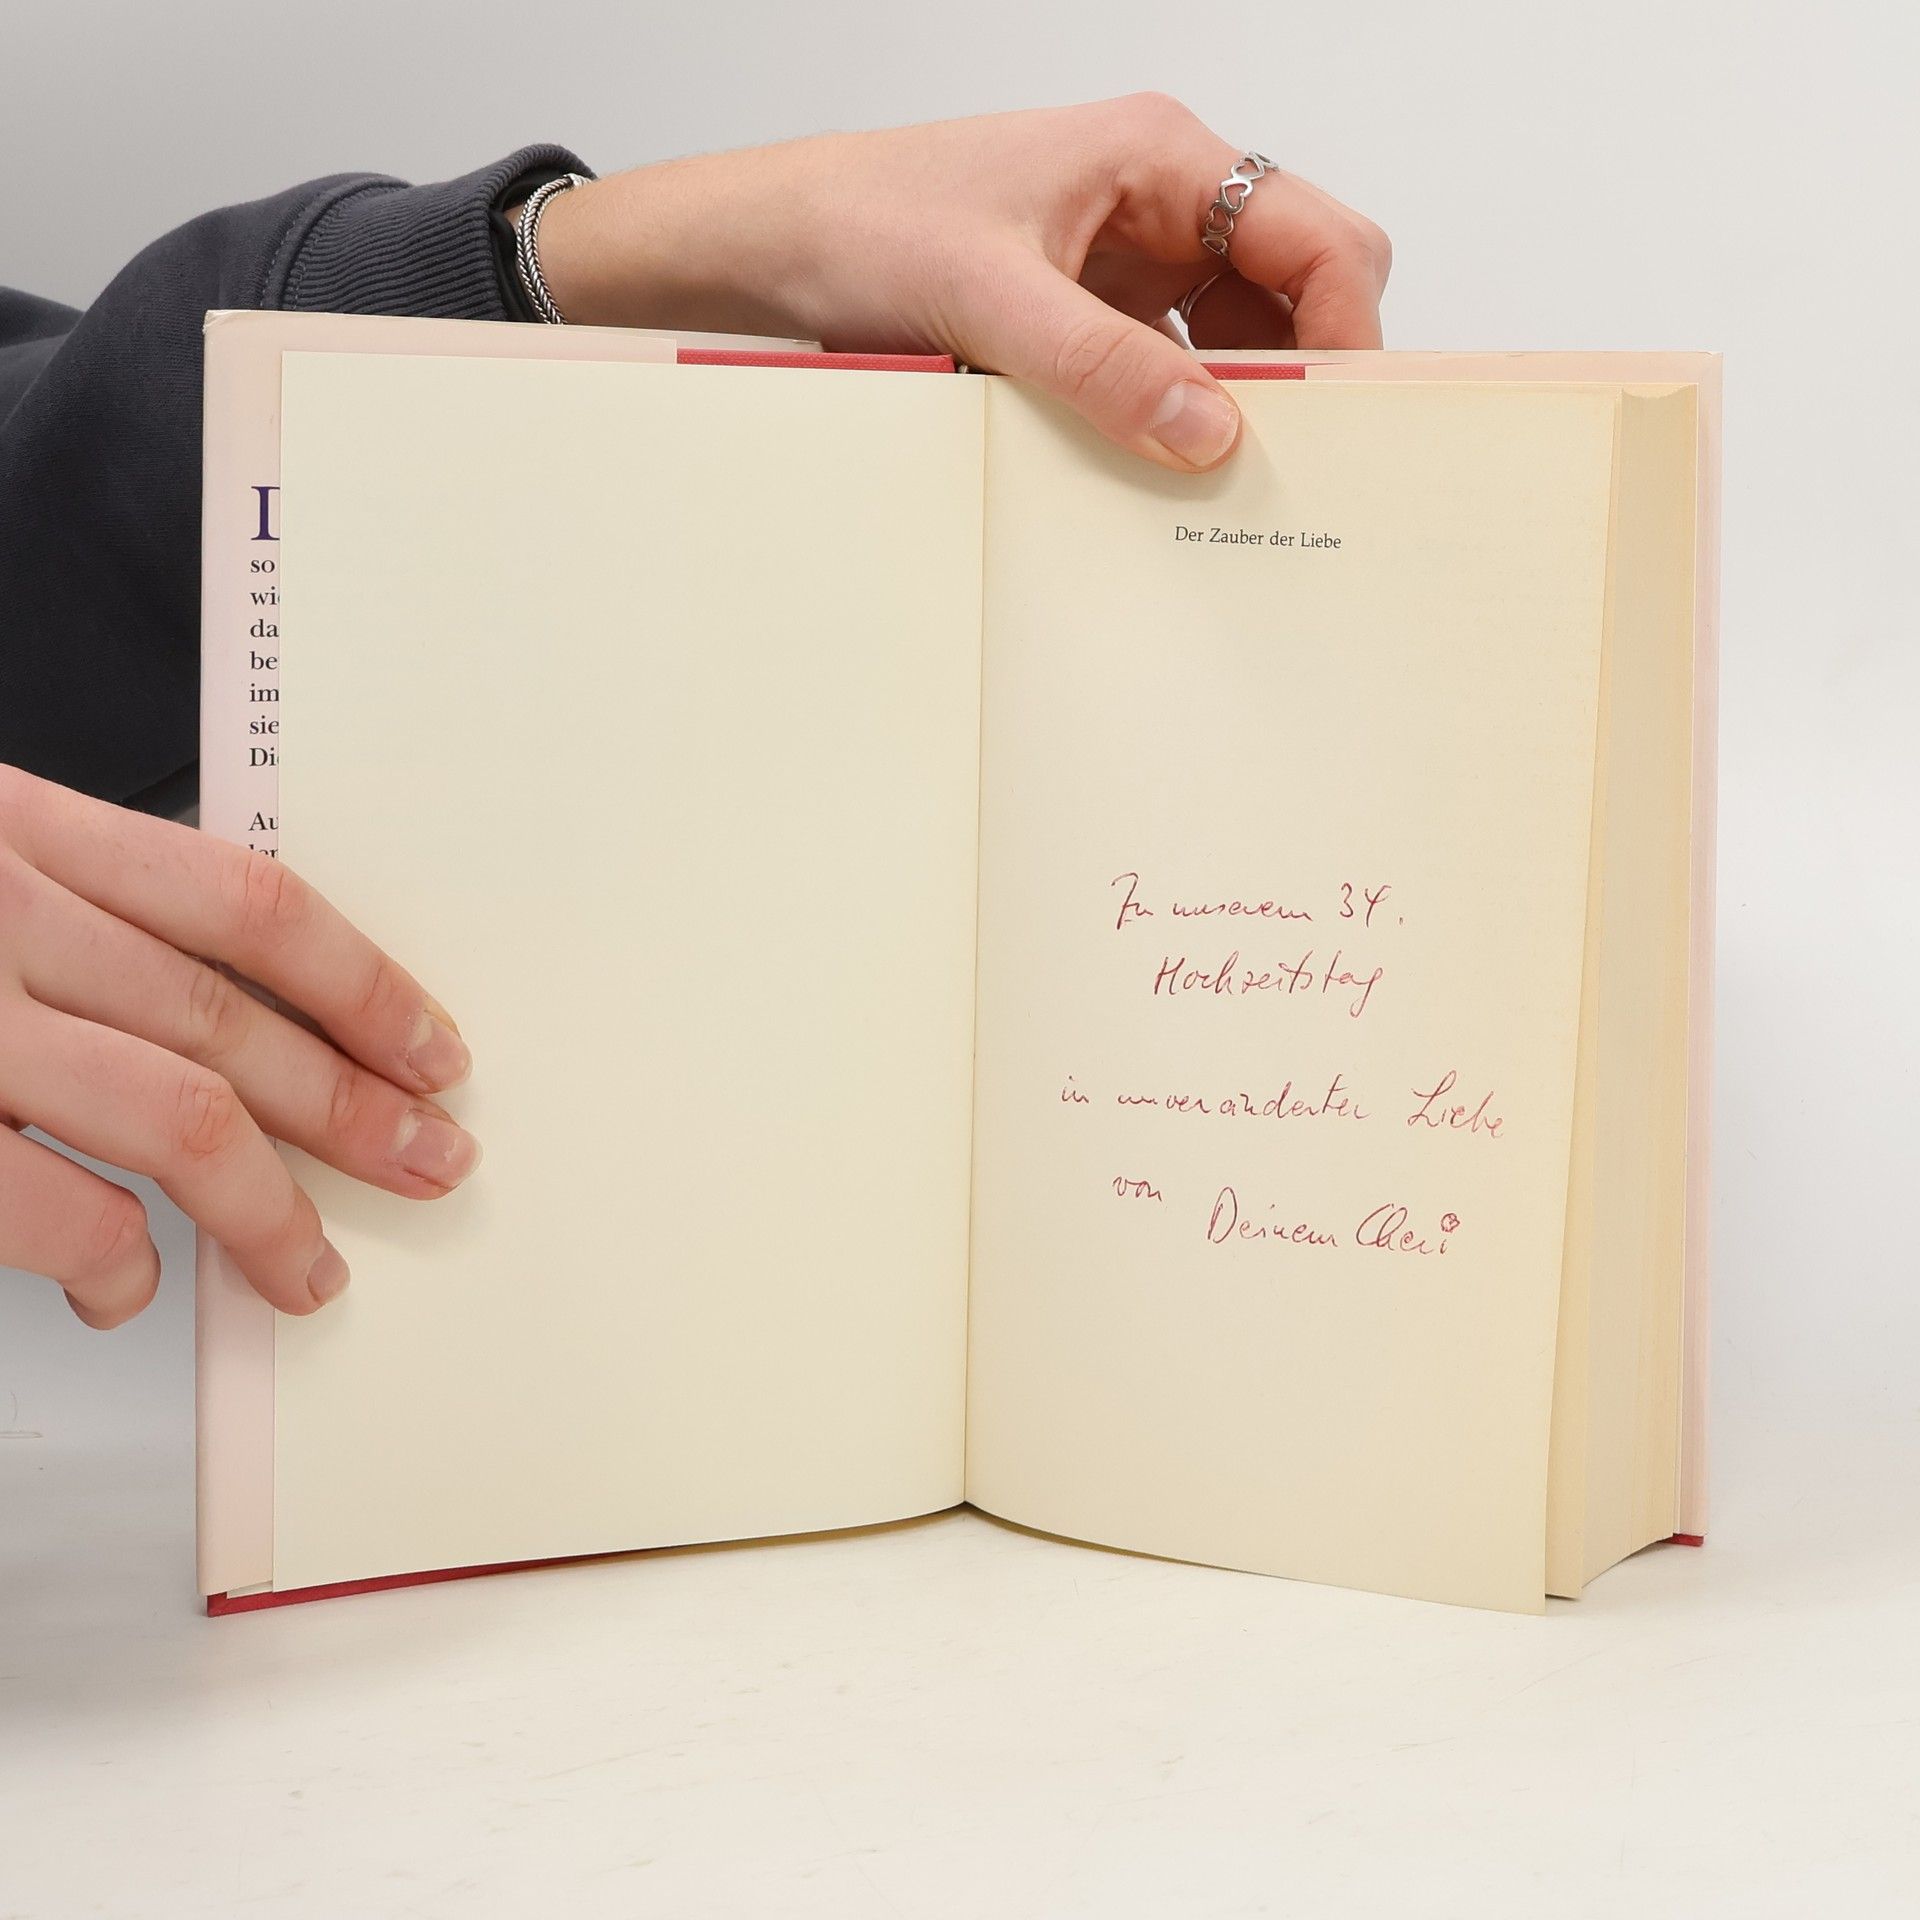 so
da
im
sie
Der Zauber der Liebe
Zu unserem 34.
Hochzeitstag
in unveränderter Liebe
von Deinem Cheri